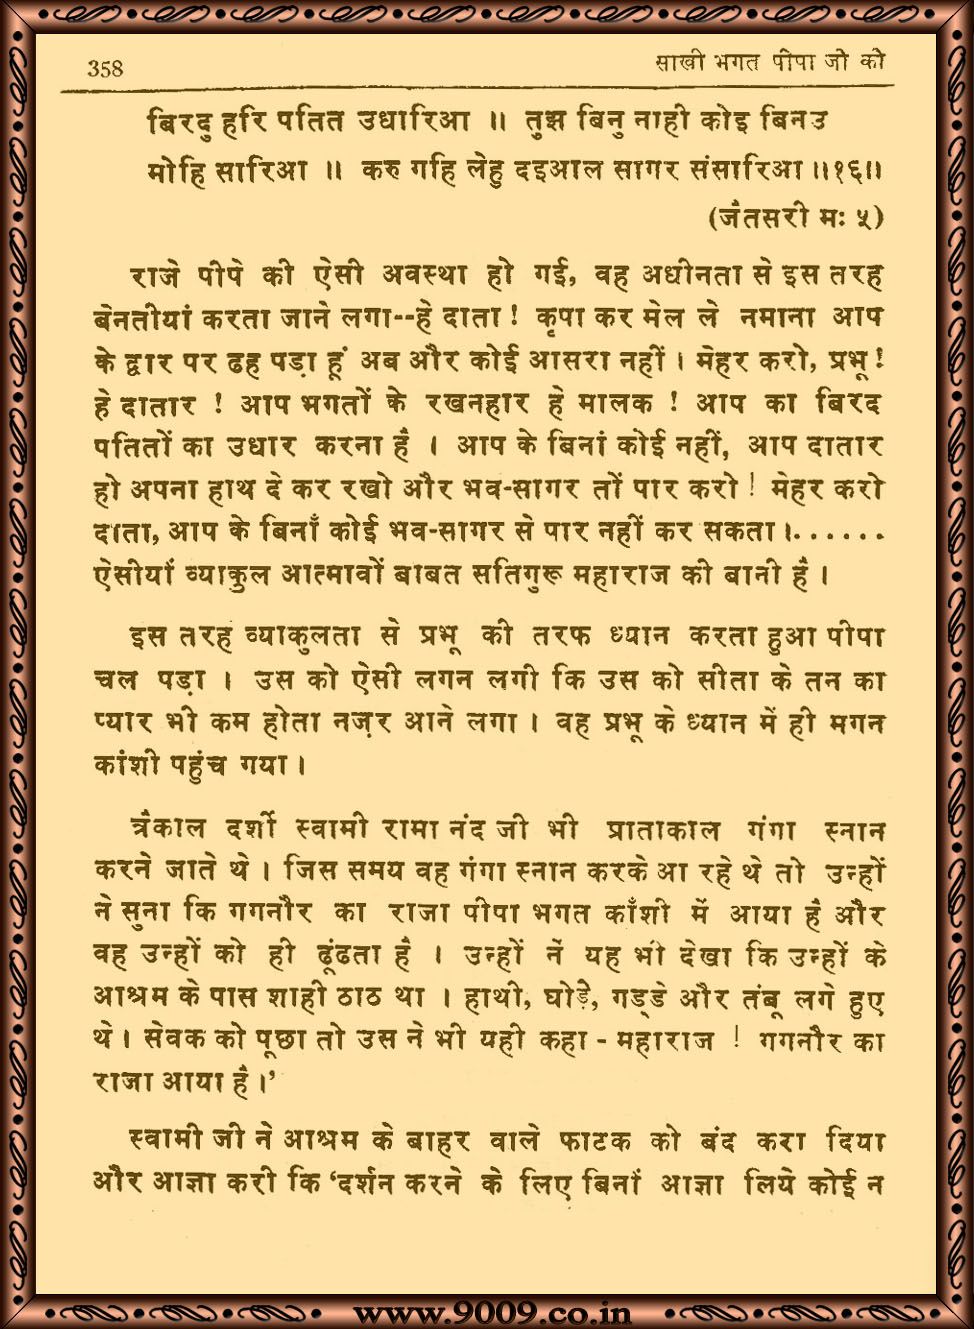 358
साखी भगत पीपा जी की
बिरदु हरि पतित उधारिआ ॥ तुझ बिनु नाही कोइ बिनउ
मोहि सारिआ ॥ करु गहि लेहु दइआल सागर संसारिआ ॥१६॥
(जैतसरी मः ५)
राजे पीपे की ऐसी अवस्था हो गई, वह अधीनता से इस तरह
बेनतीयां करता जाने लगा--हे दाता ! कृपा कर मेल ले नमाना आप
के द्वार पर ढह पड़ा हूं अब और कोई आसरा नहीं । मेहर करो, प्रभू !
हे दातार ! आप भगतों के रखनहार हे मालक ! आप का बिरद
पतितों का उधार करना है । आप के बिनां कोई नहीं, आप दातार
हो अपना हाथ दे कर रखो और भव-सागर तों पार करो ! मेहर करो
दाता, आप के बिनाँ कोई भव-सागर से पार नहीं कर सकता ।......
ऐसीयाँ व्याकुल आत्मावों बाबत सतिगुरू महाराज की बानी है ।
इस तरह व्याकुलता से प्रभू की तरफ ध्यान करता हुआ पीपा
चल पड़ा । उस को ऐसी लगन लगी कि उस को सीता के तन का
प्यार भी कम होता नज़र आने लगा । वह प्रभू के ध्यान में ही मगन
कांशी पहुंच गया ।
त्रैकाल दर्शी स्वामी रामा नंद जी भी प्राताकाल गंगा स्नान
करने जाते थे । जिस समय वह गंगा स्नान करके आ रहे थे तो उन्हों
ने सुना कि गगनौर का राजा पीपा भगत काँशी में आया है और
वह उन्हों को ही ढूंढता है । उन्हों नें यह भी देखा कि उन्हों के
आश्रम के पास शाही ठाठ था । हाथी, घोड़े, गड्डे और तंबू लगे हुए
थे । सेवक को पूछा तो उस ने भी यही कहा - महाराज ! गगनौर का
राजा आया है ।’
स्वामी जी ने आश्रम के बाहर वाले फाटक को बंद करा दिया
और आज्ञा करी कि ‘दर्शन करने के लिए बिनाँ आज्ञा लिये कोई न
www.9009.co.in